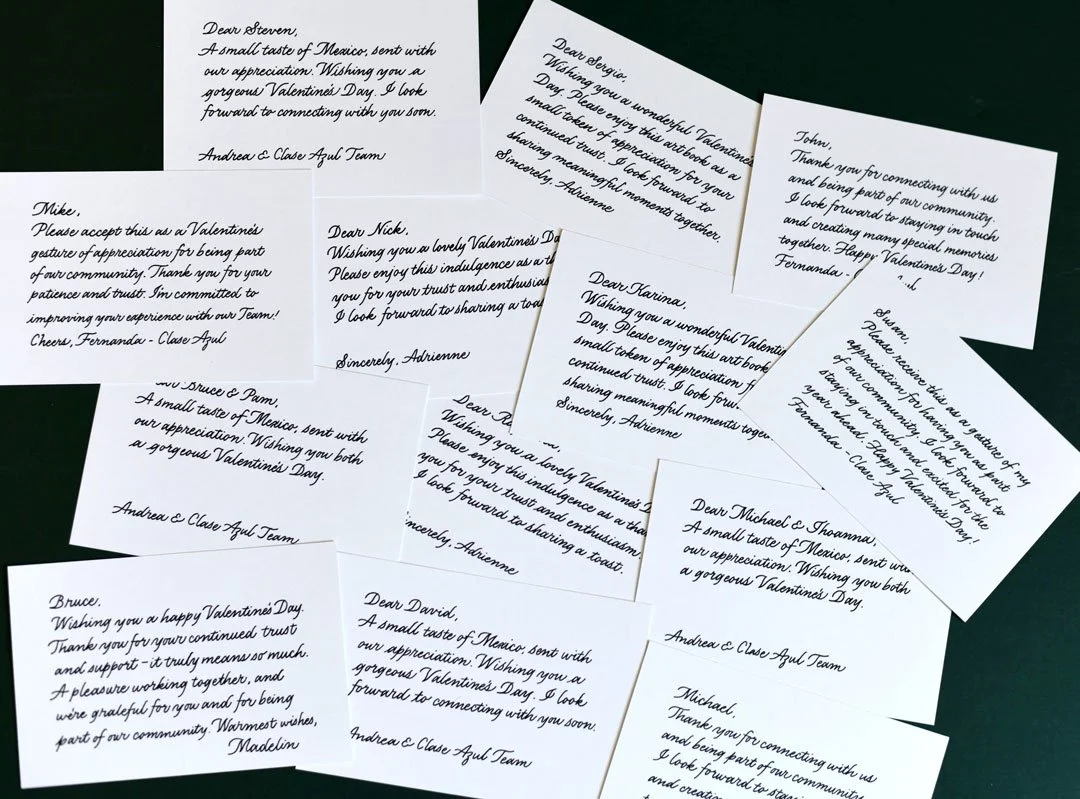 Dear Steven,
A small taste of Mexico, sent with
our appreciation. Wishing you a
gorgeous Valentine's Day. I look
forward to connecting with you soon.
Andrea & Clase Azul Team
Dear Sergio,
Wishing you a wonderful Valentine's
Day. Please enjoy this art book as a
small token of appreciation for your
continued trust. I look forward to
sharing meaningful moments together.
Sincerely, Adrienne
John,
Thank you for connecting with us
and being part of our community.
I look forward to staying in touch
and creating many special memories
together. Happy Valentine's Day!
Fernanda -
Mike,
Please accept this as a Valentine's
gesture of appreciation for being part
of our community. Thank you for your
patience and trust. I'm committed to
improving your experience with our Team!
Cheers, Fernanda - Clase Azul
Dear Nick,
Wishing you a lovely Valentine's Da
Please enjoy this indulgence as a th
you for your trust and enthusias
I look forward to sharing a toa
Sincerely, Adrienne
Dear Karina,
Wishing you a wonderful Valenti
Day. Please enjoy this art book
small token of appreciation f
continued trust. I look forw
sharing meaningful moments toge
Sincerely, Adrienne
Susan,
Please receive this as a gesture of my
appreciation for having you as part
of our community. I look forward to
staying in touch and excited for the
year ahead. Happy Valentine's Day!
Fernanda - Clase Azul
Bruce & Pam,
A small taste of Mexico, sent with
our appreciation. Wishing you both
a gorgeous Valentine's Day.
Andrea & Clase Azul Team
Dear
Wishing you a lovely Valentine's D
Please enjoy this indulgence as a tha
you for your trust and enthusiasm
I look forward to sharing a toast.
incerely, Adrienne
Dear Michael & Jhoanna,
A small taste of Mexico, sent wi
our appreciation. Wishing you both
a gorgeous Valentine's Day.
Andrea & Clase Azul Team
Bruce,
Wishing you a happy Valentine's Day.
Thank you for your continued trust
and support - it truly means so much.
A pleasure working together, and
we're grateful for you and for being
part of our community. Warmest wishes,
Madelin
Dear David,
A small taste of Mexico, sent with
our appreciation. Wishing you a
gorgeous Valentine's Day. I look
forward to connecting with you soon.
Andrea & Clase Azul Team
Michael,
Thank you for connecting with us
and being part of our community
I look forward to stay
and creatin